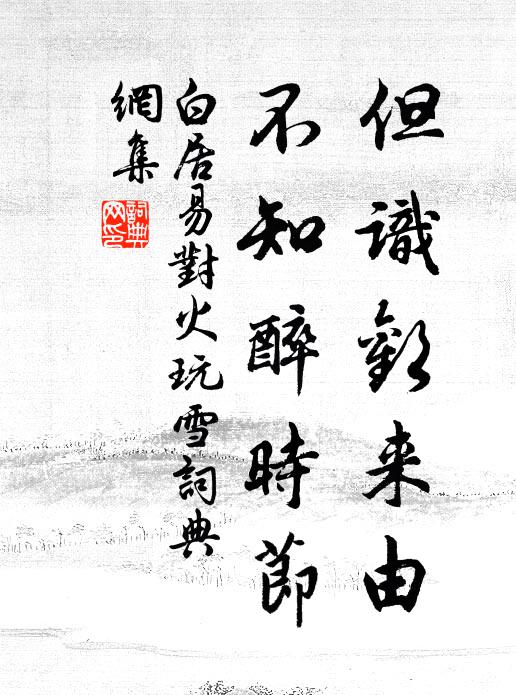 但識歡來由
不知醉時節
白居易對火玩雪詞典
網集
詞典網印